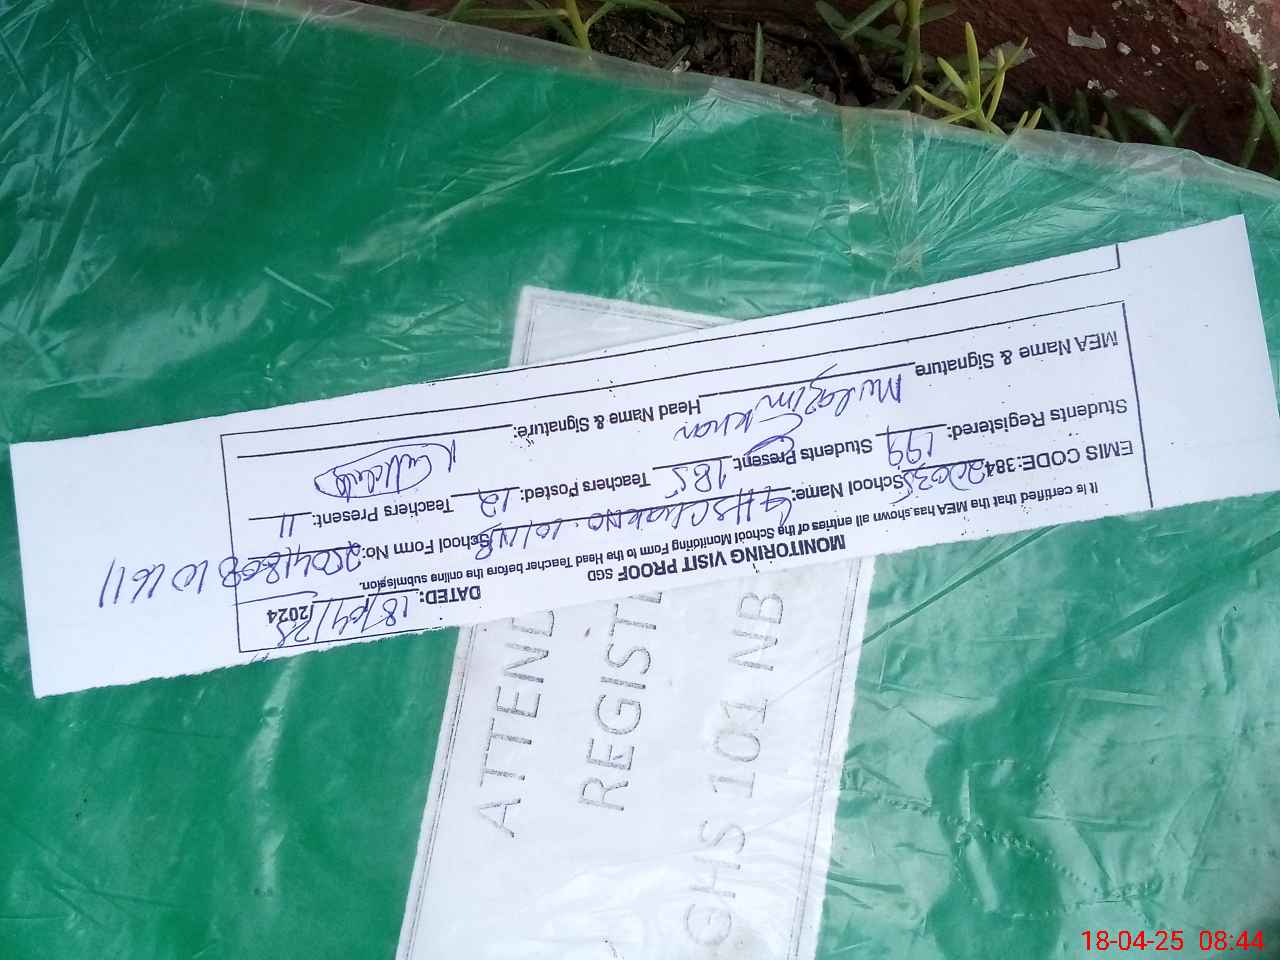 MONITORING VISIT PROOF SGD
DATED: 18/04/25 /2024
It is certified that the MEA has shown all the entries of the School Monitoring Form to the Head Teacher before the online submission.
EMIS CODE:384 20035 School Name: GHS Chak No. 101NB School Form No:
Students Registered: 199 Students Present: 185 Teachers Posted: 12 Teachers Present: 11
MEA Name & Signature Mulazim Khan Head Name & Signature:
ATTEND
REGISTE
GHS 101 NB
18-04-25 08:44